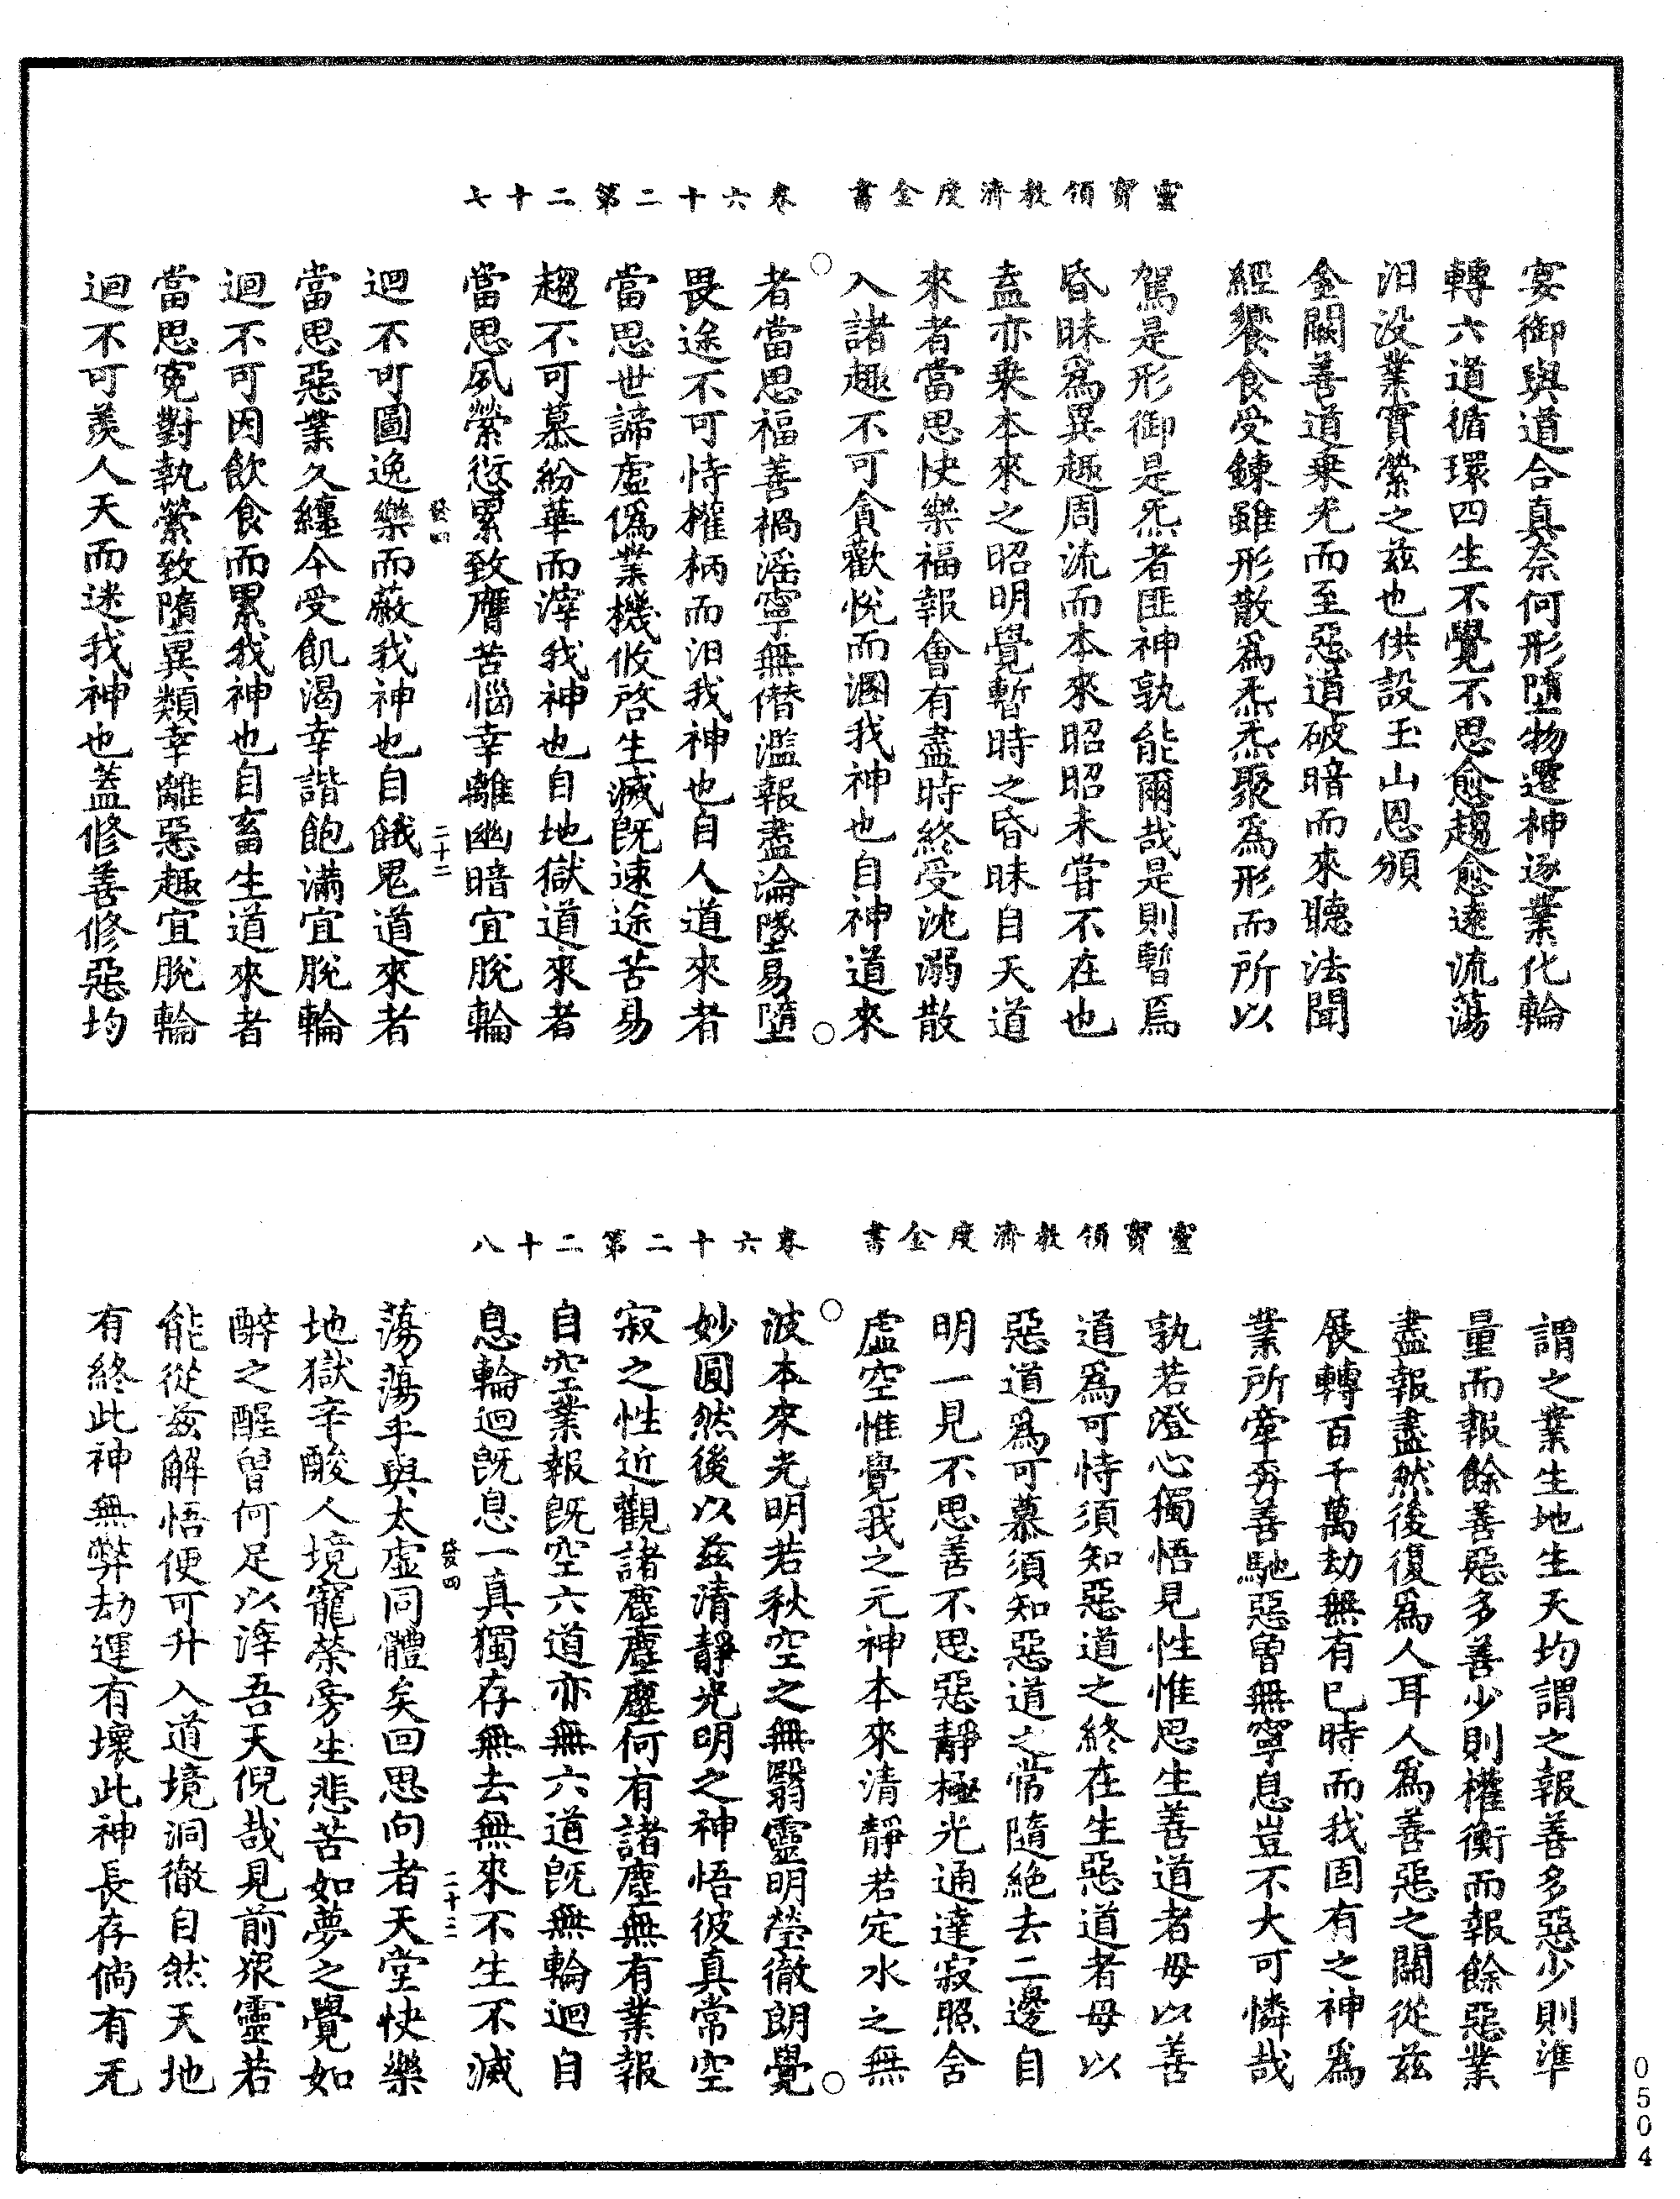 靈寶領教濟度金書　卷六十二第二十七
宴御與道合真奈何形墮物遷神逐業化輪
轉六道循環四生不覺不思愈趨愈遠流蕩
汨没業實縈之兹也供設玉山恩頒
金闕善道乗光而至惡道破暗而來聽法聞
經饗食受鍊雖形散爲炁炁聚爲形而所以
駕是形御是炁者匪神孰能爾哉是則暫焉
昏昧爲異趣周流而本來昭昭未甞不在也
盍亦乗本來之昭明覺暫時之昏昧自天道
來者當思快樂福報會有盡時終受沈溺散
入諸趣不可貪歡悅而溷我神也自神道來
者當思福善禍滛寧無僣濫報盡淪墜易墮
畏途不可恃權柄而汨我神也自人道來者
當思世諦虛僞業機攸啓生滅旣速途苦易
趨不可慕紛華而滓我神也自地獄道來者
當思夙縈愆累致膺苦惱幸離幽暗宜脫輪
發四　二十二
迴不可圖逸樂而蔽我神也自餓鬼道來者
當思惡業久纏今受飢渴幸諧飽滿宜脫輪
迴不可因飲食而累我神也自畜生道來者
當思寃對執縈致墮異類幸離惡趣宜脫輪
迴不可羨人天而迷我神也蓋修善修惡均
靈寶領教濟度金書　卷六十二第二十八
謂之業生地生天均謂之報善多惡少則準
量而報餘善惡多善少則權衡而報餘惡業
盡報盡然後復爲人耳人爲善惡之關從兹
展轉百千萬劫無有已時而我固有之神爲
業所牽奔善馳惡曽無寧息豈不大可憐哉
孰若澄心獨悟見性惟思生善道者毋以善
道爲可恃須知惡道之終在生惡道者毋以
惡道爲可慕須知惡道之常隨絶去二邊自
明一見不思善不思惡靜極光通達寂照含
虛空惟覺我之元神本來清靜若定水之無
波本來光明若秋空之無翳靈明瑩徹朗覺
妙圓然後以兹清靜光明之神悟彼真常空
寂之性近觀諸塵塵塵何有諸塵無有業報
自空業報旣空六道亦無六道旣無輪迴自
息輪迴旣息一真獨存無去無來不生不滅
發四　二十三
蕩蕩乎與太虛同體矣回思向者天堂快樂
地獄辛酸人境寵榮旁生悲苦如夢之覺如
醉之醒曽何足以滓吾天倪哉見前衆靈若
能從兹解悟便可升入道境洞徹自然天地
有終此神無弊劫運有壞此神長存倘有无
0504